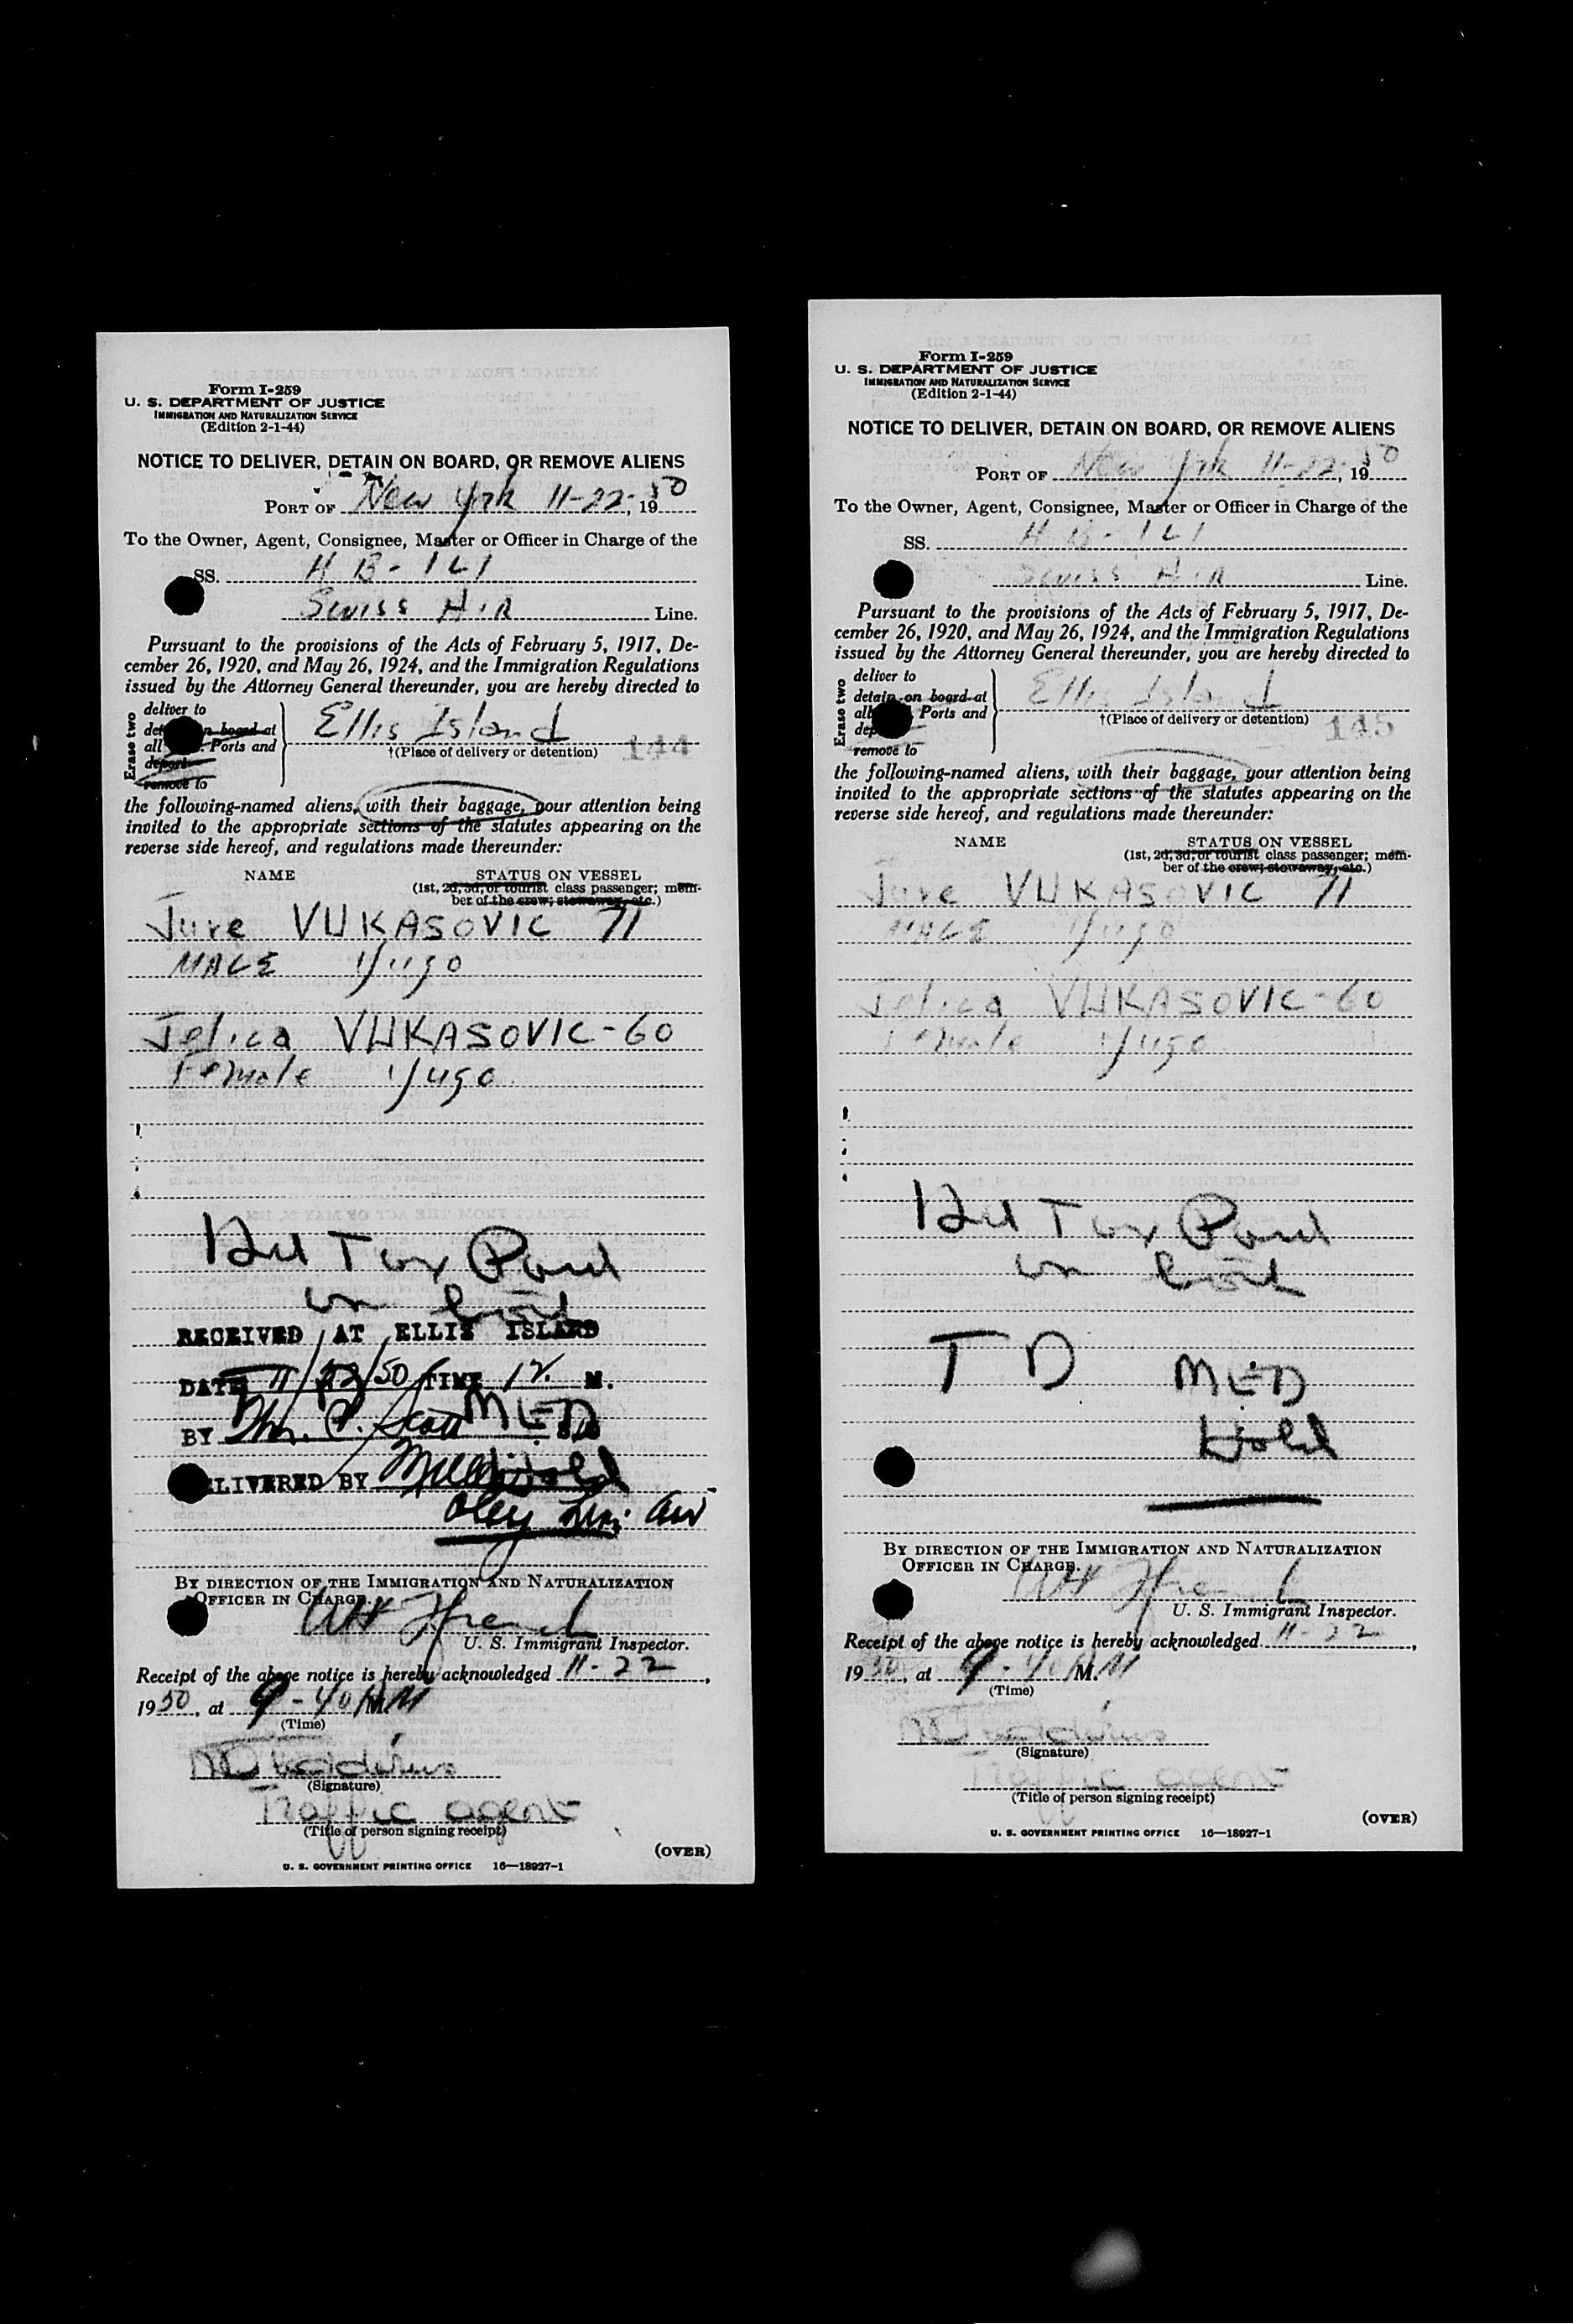 Form I-259
U. S. DEPARTMENT OF JUSTICE
IMMIGRATION AND NATURALIZATION SERVICE
(Edition 2-1-44)
NOTICE TO DELIVER, DETAIN ON BOARD, OR REMOVE ALIENS
PORT OF New York 11-22, 1950
To the Owner, Agent, Consignee, Master or Officer in Charge of the
SS. HB-ILI
Swiss Air Line.
Pursuant to the provisions of the Acts of February 5, 1917, De-
cember 26, 1920, and May 26, 1924, and the Immigration Regulations
issued by the Attorney General thereunder, you are hereby directed to
Erase two
deliver to
on board at
all Ports and
deport
remove to
Ellis Island
†(Place of delivery or detention) 144
the following-named aliens, with their baggage, your attention being
invited to the appropriate sections of the statutes appearing on the
reverse side hereof, and regulations made thereunder:
NAME STATUS ON VESSEL
(1st, 2d, 3d, or tourist class passenger; mem-
ber of the crew; stowaway, etc.)
Jure VUKASOVIC 71
MALE Yugo
Jelica VUKASOVIC-60
Female Yugo.
Tax Paid
on
RECEIVED AT ELLIS ISLAND
DATE 11/22/50 TIME 12 M.
BY Scott MED
DELIVERED BY Hold
Air
BY DIRECTION OF THE IMMIGRATION AND NATURALIZATION
OFFICER IN CHARGE.
U. S. Immigrant Inspector.
Receipt of the above notice is hereby acknowledged 11-22,
1950, at 9-40 AM M.
(Time)
(Signature)
Traffic agent
(Title of person signing receipt)
(OVER)
U. S. GOVERNMENT PRINTING OFFICE 16—18927-1
Form I-259
U. S. DEPARTMENT OF JUSTICE
IMMIGRATION AND NATURALIZATION SERVICE
(Edition 2-1-44)
NOTICE TO DELIVER, DETAIN ON BOARD, OR REMOVE ALIENS
PORT OF New York 11-22, 1950
To the Owner, Agent, Consignee, Master or Officer in Charge of the
SS. HB-ILI
Swiss Air Line.
Pursuant to the provisions of the Acts of February 5, 1917, De-
cember 26, 1920, and May 26, 1924, and the Immigration Regulations
issued by the Attorney General thereunder, you are hereby directed to
Erase two
deliver to
detain on board at
all Ports and
remove to
Ellis Island
†(Place of delivery or detention) 145
the following-named aliens, with their baggage, your attention being
invited to the appropriate sections of the statutes appearing on the
reverse side hereof, and regulations made thereunder:
NAME STATUS ON VESSEL
(1st, 2d, 3d, or tourist class passenger; mem-
ber of the crew; stowaway, etc.)
Jure VUKASOVIC 71
MALE Yugo
Jelica VUKASOVIC-60
Female Yugo.
Tax Paid
on
T D MED
Hold
BY DIRECTION OF THE IMMIGRATION AND NATURALIZATION
OFFICER IN CHARGE.
U. S. Immigrant Inspector.
Receipt of the above notice is hereby acknowledged 11-22,
1950, at 9-40 AM M.
(Time)
(Signature)
Traffic agent
(Title of person signing receipt)
(OVER)
U. S. GOVERNMENT PRINTING OFFICE 16—18927-1